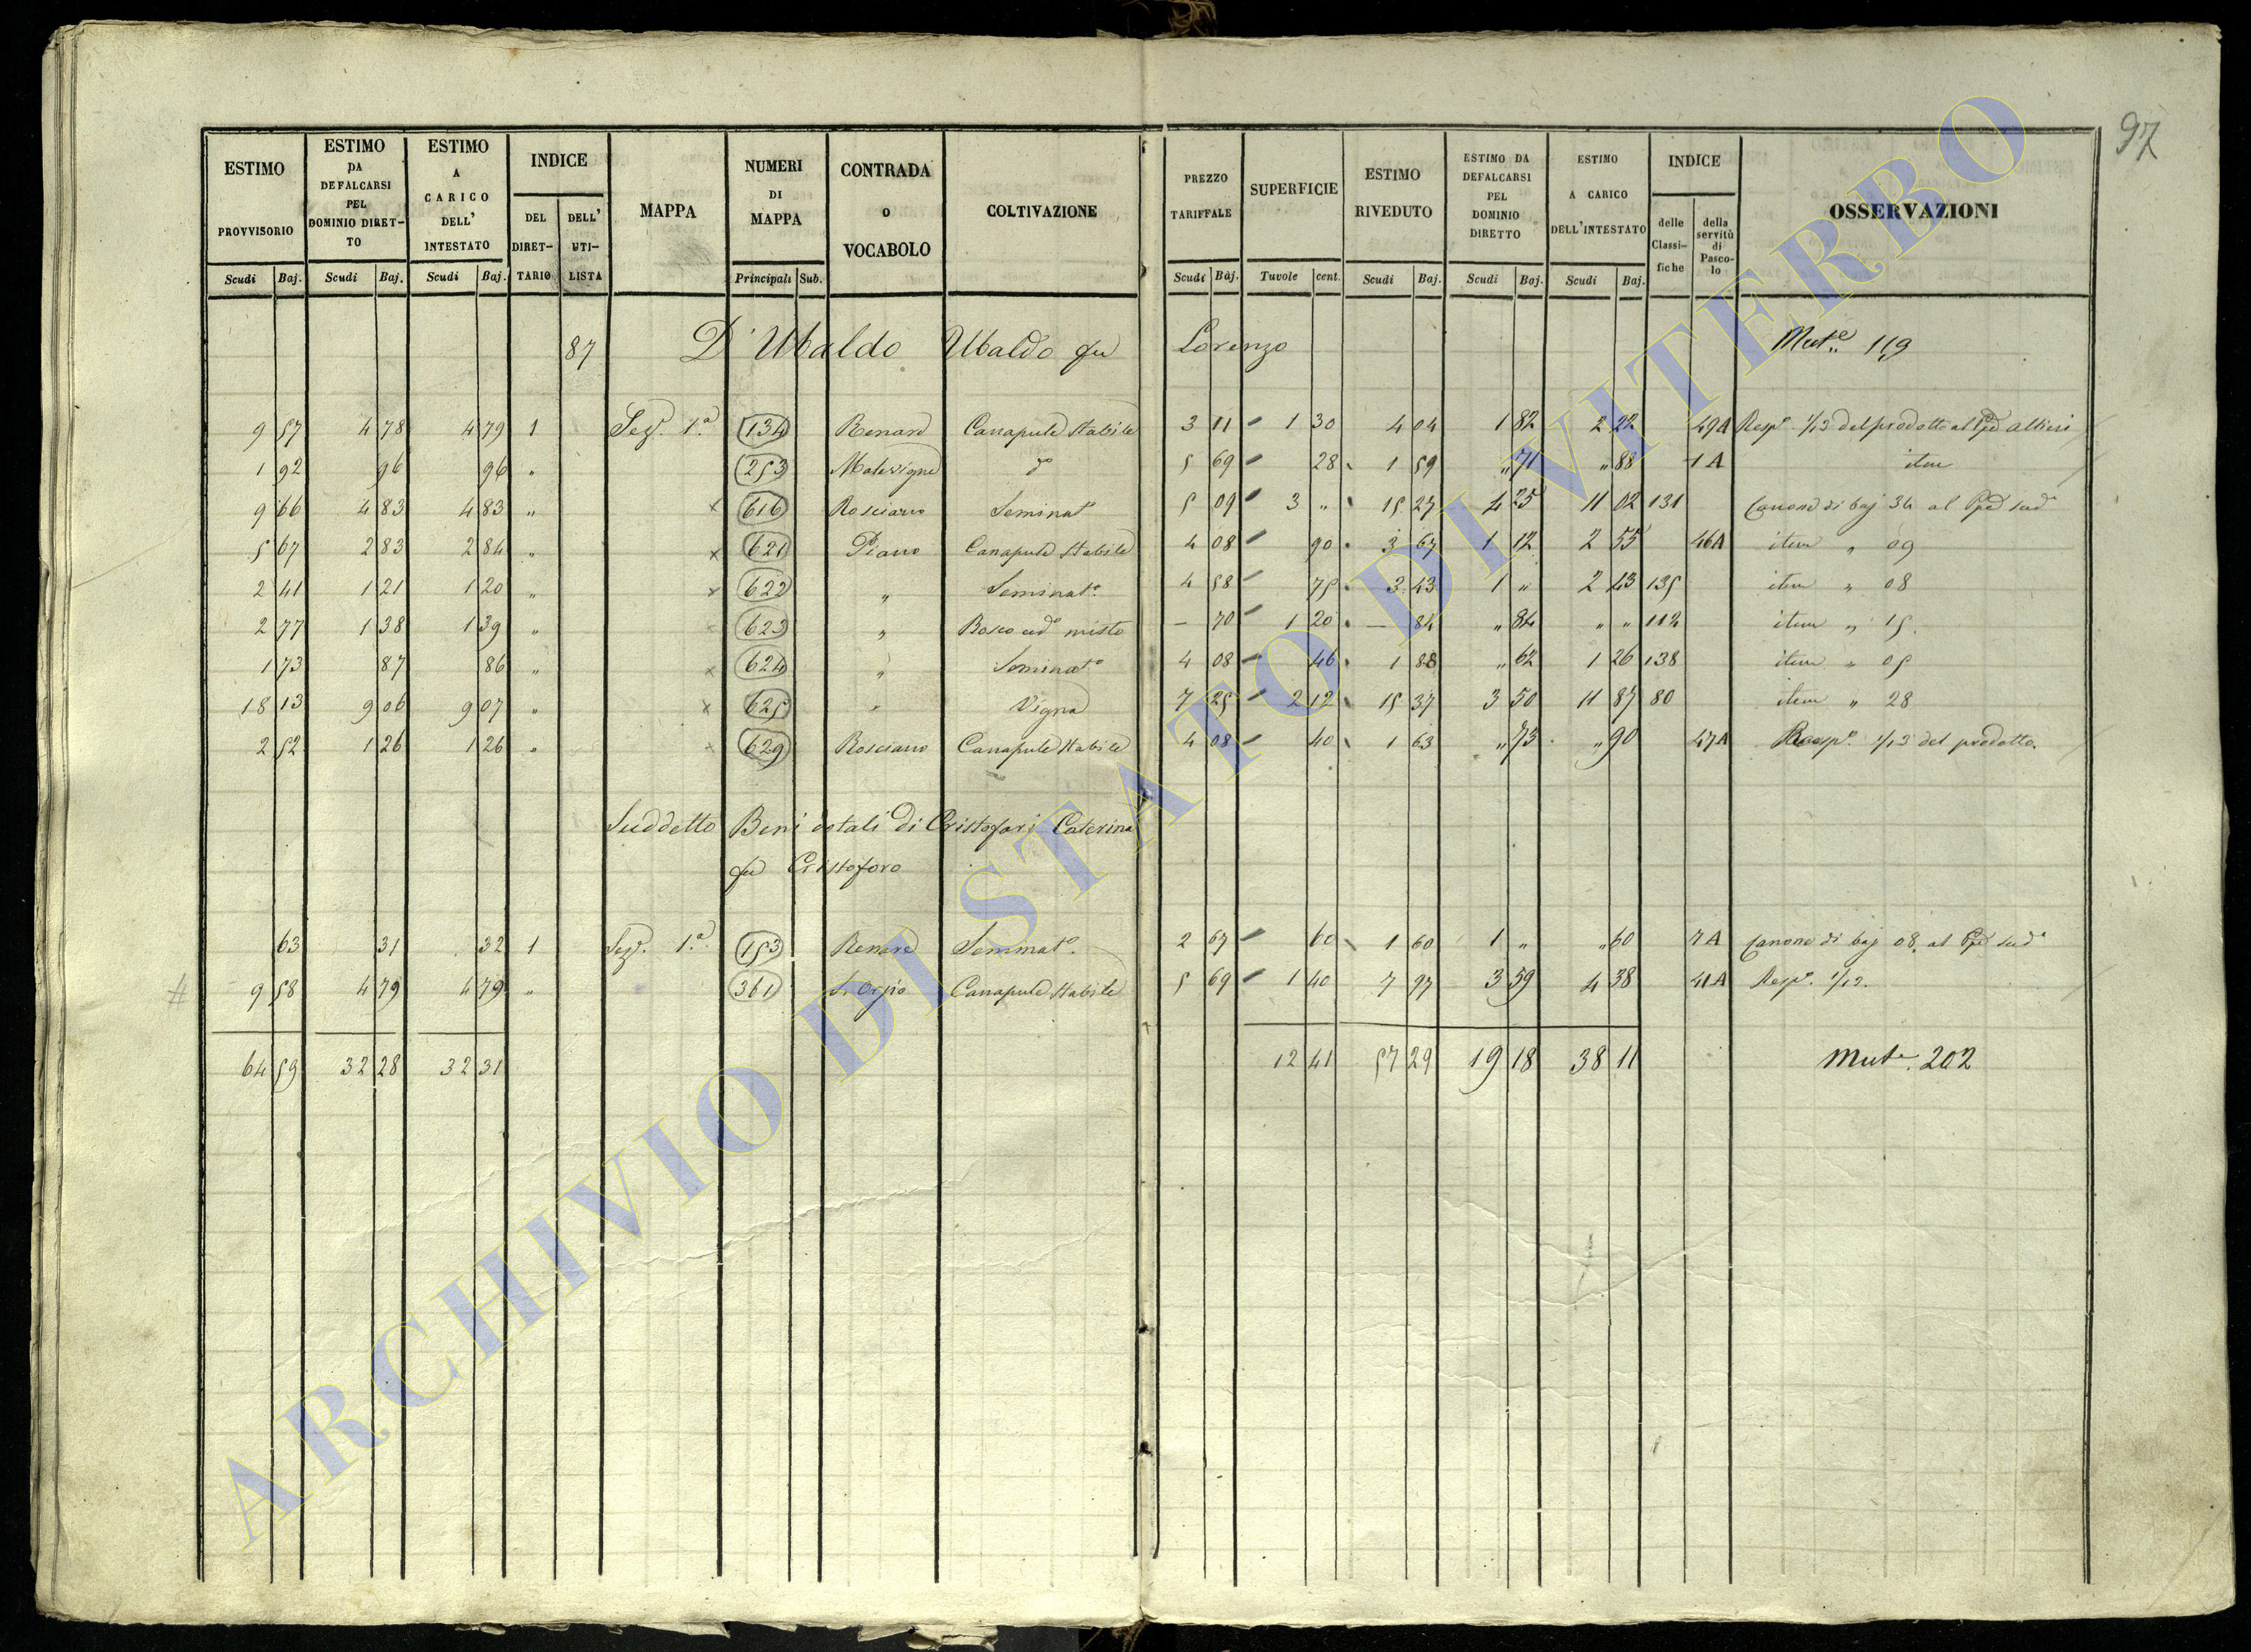 97
ESTIMO PROVVISORIO Scudi Baj.
ESTIMO DA DEFALCARSI PEL DOMINIO DIRETTO Scudi Baj.
ESTIMO A CARICO DELL' INTESTATO Scudi Baj.
INDICE DEL DIRETTARIO DELL' UTILISTA
MAPPA
NUMERI DI MAPPA Principali Sub.
CONTRADA O VOCABOLO
COLTIVAZIONE
PREZZO TARIFFALE Scudi Baj.
SUPERFICIE Tavole cent.
ESTIMO RIVEDUTO Scudi Baj.
ESTIMO DA DEFALCARSI PEL DOMINIO DIRETTO Scudi Baj.
ESTIMO A CARICO DELL'INTESTATO Scudi Baj.
INDICE delle Classifiche della servitù di Pascolo
OSSERVAZIONI
87 D'Ubaldo Ubaldo fu Lorenzo Mut.e 119
9 57 4 78 4 79 1 Sez. 1.a 134 Renard Canapule Stabile 3 11 1 30 4 04 1 82 2 22 49A Resp. 1/13 del prodotto al Altieri
1 92 96 96 " 253 Malevigne d.o 5 69 28 1 59 " 71 " 88 1A item
9 66 4 83 4 83 " x 616 Rosciano Seminat.o 5 09 3 " 15 27 4 25 11 02 131 Canone di baj 34 al Sud.o
5 67 2 83 2 84 " x 621 Piano Canapule Stabile 4 08 90 3 67 1 12 2 55 46A item " 09
2 41 1 21 1 20 " x 622 " Seminat.o 4 58 75 3 43 1 " 2 43 135 item " 08
2 77 1 38 1 39 " x 623 " Bosco ced.o misto – 70 1 20 – 84 " 84 " " 112 item " 15.
1 73 87 86 " x 624 " Seminat.o 4 08 46 1 88 " 62 1 26 138 item " 05
18 13 9 06 9 07 " x 625 " Vigna 7 25 2 12 15 37 3 50 11 87 80 item " 28
2 52 1 26 1 26 " x 629 Rosciano Canapule Stabile 4 08 40 1 63 " 73 " 90 47A Resp. 1/13 del prodotto.
Suddetto Beni dotali di Cristofari Caterina
fu Cristoforo
63 31 32 1 Sez. 1.a 153 Renard Seminat.o 2 67 60 1 60 1 " " 60 7A Canone di baj 08. al Sud.o
# 9 58 4 79 4 79 " 361 Canapule Stabile 5 69 1 40 7 97 3 59 4 38 41A Resp. 1/12.
64 59 32 28 32 31 12 41 57 29 19 18 38 11 Mut.e 202
ARCHIVIO DI STATO DI VITERBO